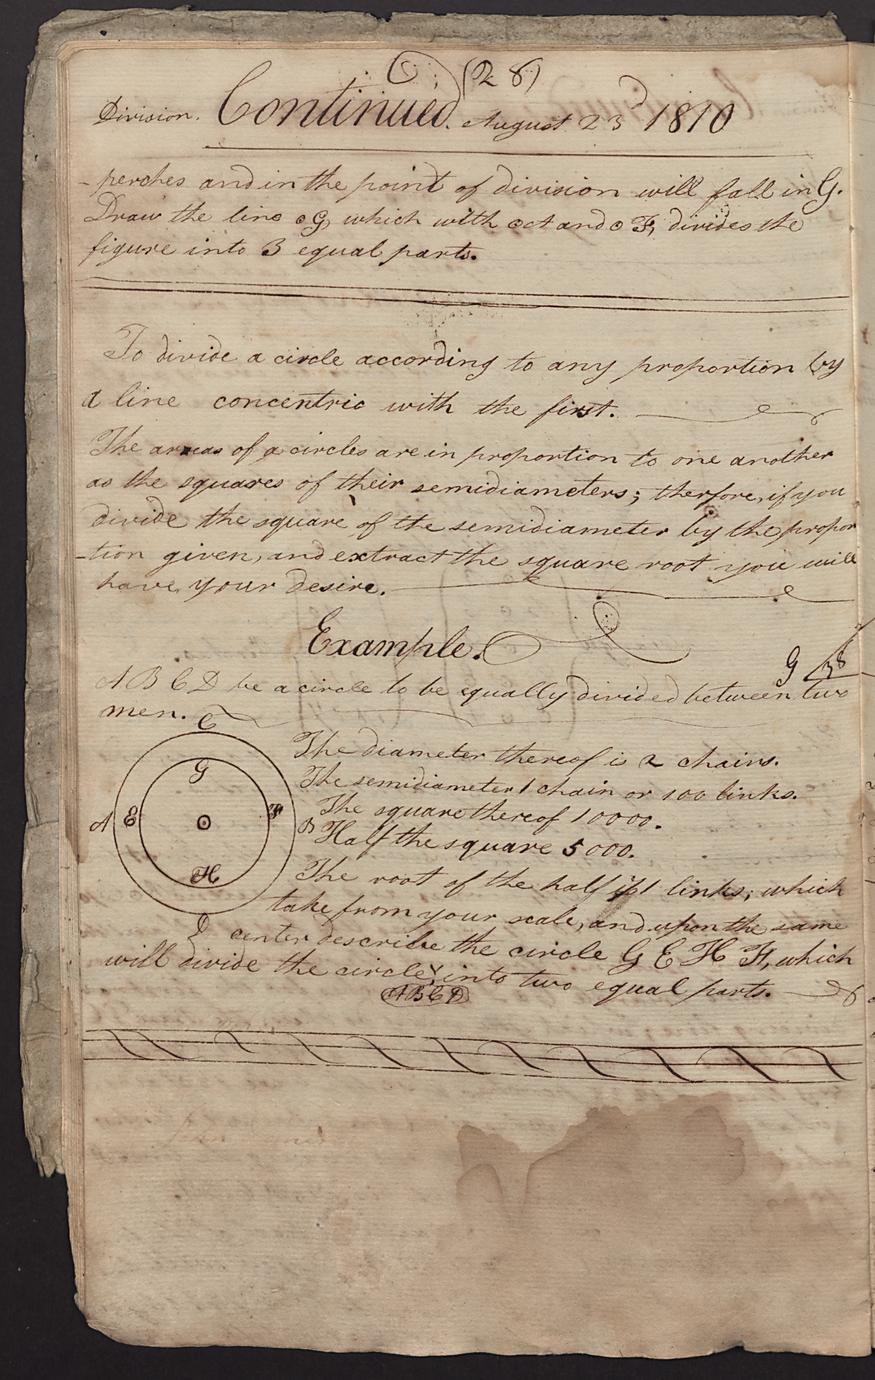 (28)
Division. Continued. August 23d 1810
-perches and in the point of division will fall in G.
Draw the line oG, which with oA and oF, divides the
figure into 3 equal parts.
To divide a circle according to any proportion by
a line concentric with the first.
The areas of a circles are in proportion to one another
as the squares of their semidiameters; therfore, if you
divide the square of the semidiameter by the propor
-tion given, and extract the square root you will
have your desire.
Example.
G 38
A B C D be a circle to be equally divided between two
men.
C
G
A E F B
H
D
The diameter thereof is 2 chains.
The semidiameter 1 chain or 100 links.
The square thereof 10000.
Half the square 5000.
The root of the half 71 links; which
take from your scale, and upon the same
center describe the circle G E H F, which
will divide the circle ^ into two equal parts.
ABCD